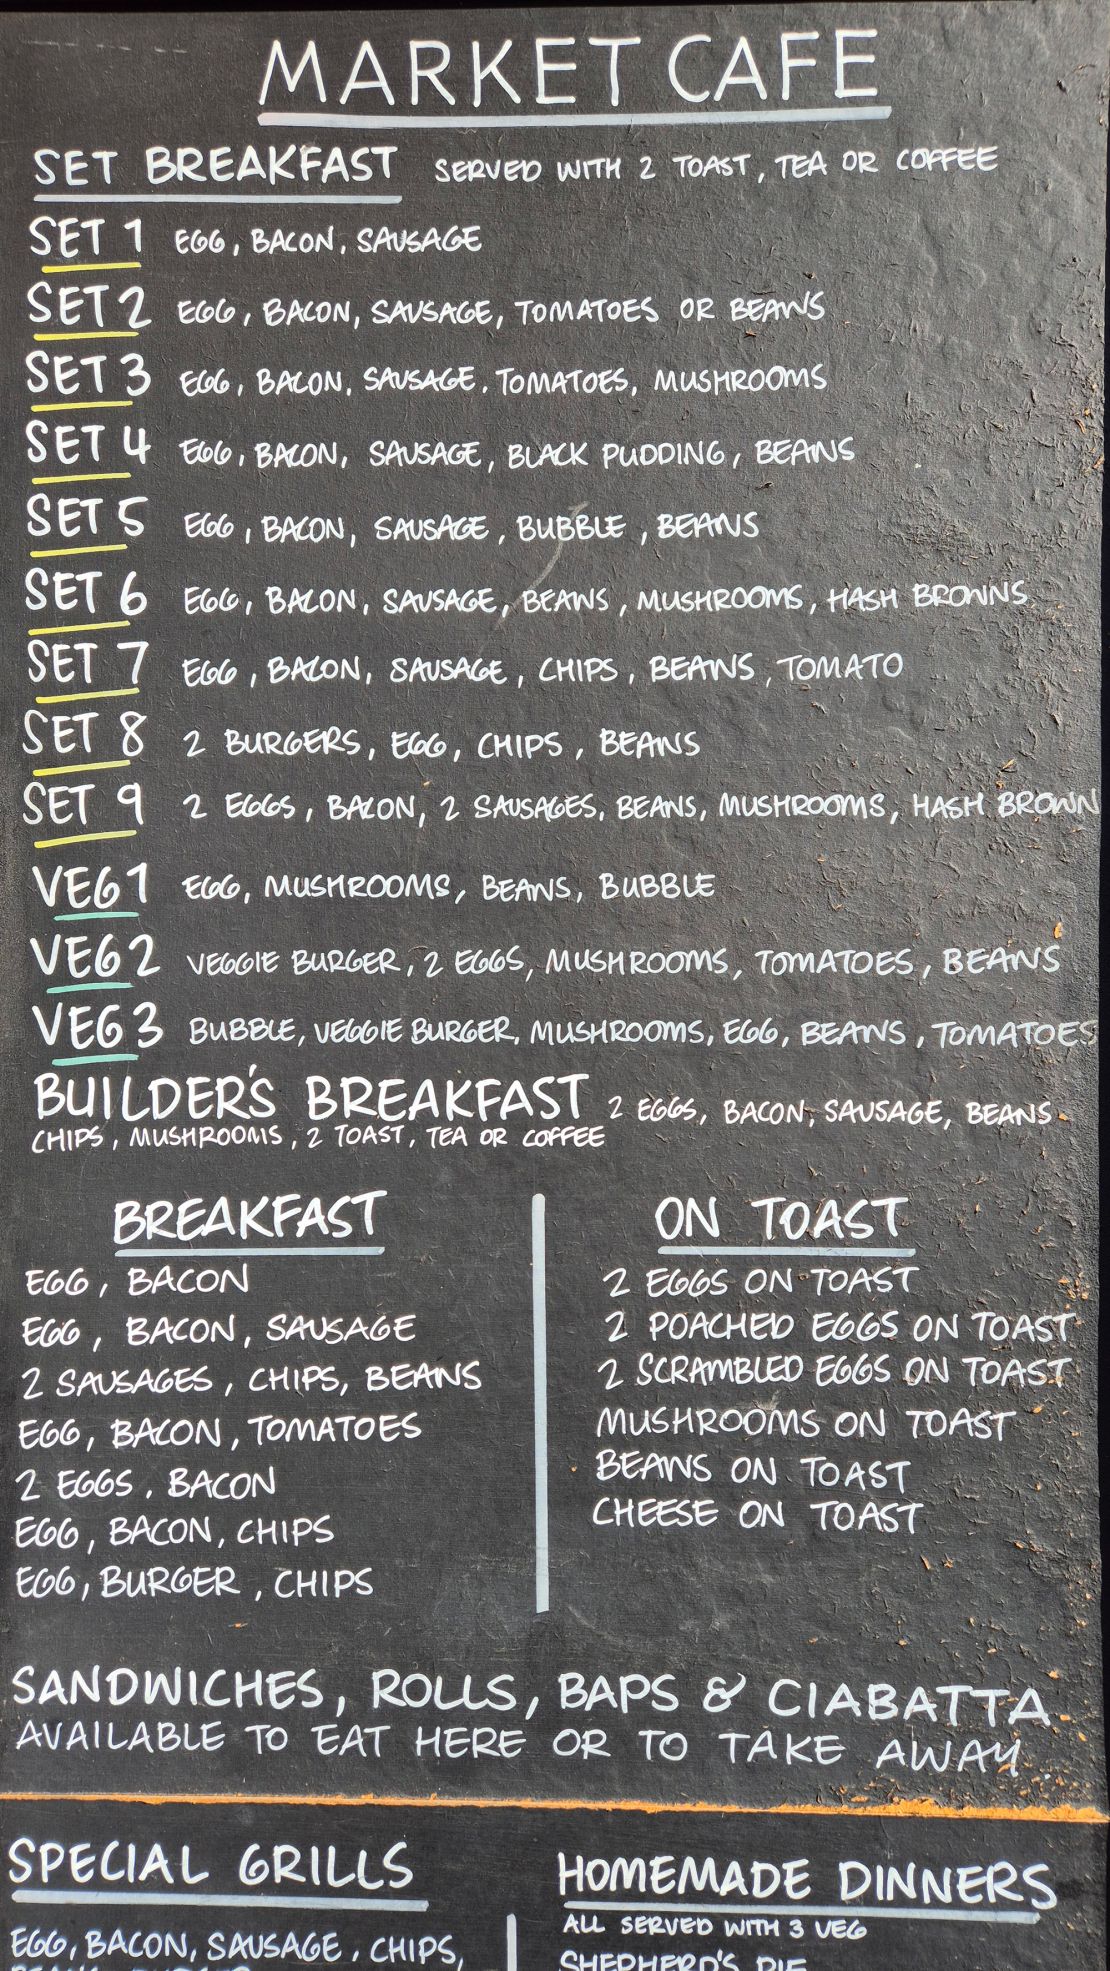 MARKET CAFE
SET BREAKFAST SERVED WITH 2 TOAST, TEA OR COFFEE
SET 1 EGG, BACON, SAUSAGE
SET 2 EGG, BACON, SAUSAGE, TOMATOES OR BEANS
SET 3 EGG, BACON, SAUSAGE, TOMATOES, MUSHROOMS
SET 4 EGG, BACON, SAUSAGE, BLACK PUDDING, BEANS
SET 5 EGG, BACON, SAUSAGE, BUBBLE, BEANS
SET 6 EGG, BACON, SAUSAGE, BEANS, MUSHROOMS, HASH BROWNS
SET 7 EGG, BACON, SAUSAGE, CHIPS, BEANS, TOMATO
SET 8 2 BURGERS, EGG, CHIPS, BEANS
SET 9 2 EGGS, BACON, 2 SAUSAGES, BEANS, MUSHROOMS, HASH BROWN
VEG 1 EGG, MUSHROOMS, BEANS, BUBBLE
VEG 2 VEGGIE BURGER, 2 EGGS, MUSHROOMS, TOMATOES, BEANS
VEG 3 BUBBLE, VEGGIE BURGER, MUSHROOMS, EGG, BEANS, TOMATOES
BUILDER'S BREAKFAST 2 EGGS, BACON, SAUSAGE, BEANS
CHIPS, MUSHROOMS, 2 TOAST, TEA OR COFFEE
BREAKFAST
EGG, BACON
EGG, BACON, SAUSAGE
2 SAUSAGES, CHIPS, BEANS
EGG, BACON, TOMATOES
2 EGGS, BACON
EGG, BACON, CHIPS
EGG, BURGER, CHIPS
ON TOAST
2 EGGS ON TOAST
2 POACHED EGGS ON TOAST
2 SCRAMBLED EGGS ON TOAST
MUSHROOMS ON TOAST
BEANS ON TOAST
CHEESE ON TOAST
SANDWICHES, ROLLS, BAPS & CIABATTA
AVAILABLE TO EAT HERE OR TO TAKE AWAY.
SPECIAL GRILLS
EGG, BACON, SAUSAGE, CHIPS,
HOMEMADE DINNERS
ALL SERVED WITH 3 VEG
SHEPHERD'S PIE